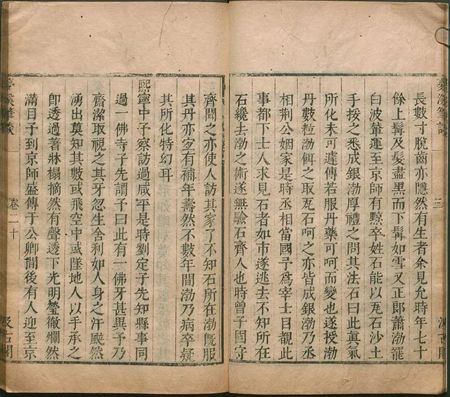 長數寸脫齒亦隱然有生者余見允時年七十
餘上髯及髮盡黑而下髯如雪又正郎蕭渤罷
白波輦運至京師有黥卒姓石能以瓦石沙土
手挼之悉成銀渤厚禮之問其法石曰此真氣
所化未可遽傳若服丹藥可呵而變也遂授渤
丹數粒渤餌之取瓦石呵之亦皆成銀渤乃丞
相荊公姻家是時丞相當國予為宰士目覩此
事都下士人求見石者如市遂逃去不知所在
石纔去渤之術遂無驗石齊人也時曾子固守
齊聞之亦使人訪其家了不知石所在渤既服
其丹亦宜有補年壽然不數年間渤乃病卒疑
其所化特幻耳
熙寧中予察訪過咸平是時劉定子先知縣事同
過一佛寺子先謂予曰此有一佛牙甚異予乃
齋潔取視之其牙忽生舍利如人身之汗颯然
湧出莫知其數或飛空中或墜地人以手承之
卽透過著牀榻摘然有聲透下光明瑩徹爛然
滿目予到京師盛傳于公卿間後有人迎至京